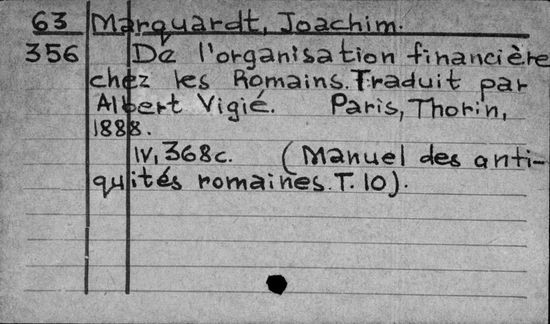 63 Marquardt, Joachim.
356 Dé l'organisation financière
chez les Romains. Traduit par
Albert Vigié. Paris, Thorin,
1888.
IV, 368c. (Manuel des anti-
quités romaines. T. 10).